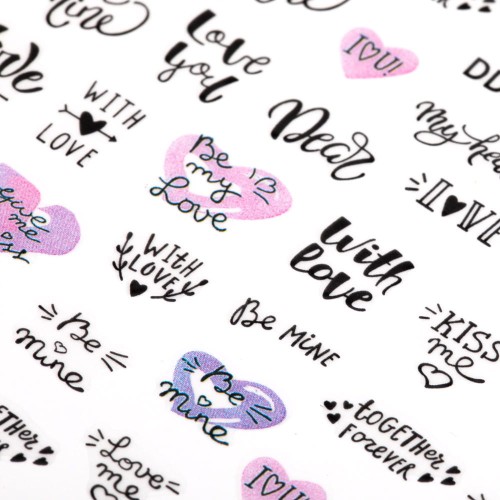 mine
Love
you
I♥U!
WITH
LOVE
Dear
My
Be
my
Love
I♥
me
With
LOVE
With
love
Be
mine
Be MINE
KISS
me
Be
mine
toGETHer
Forever
Love
me
I♥U!